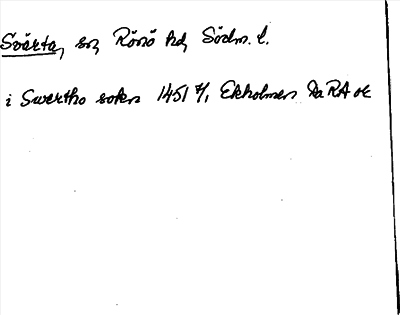 Svärta, sn, Rönö hd, Södm. l.
i Swertho sokn 1451 7/1 Ekholmen RA or